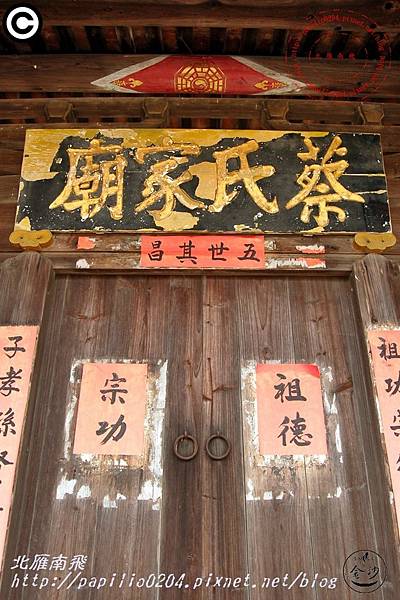 蔡氏家廟
五世其昌
祖德
宗功
子孝孫
祖德榮
北雁南飛
http://papilio0204.pixnet.net/blog